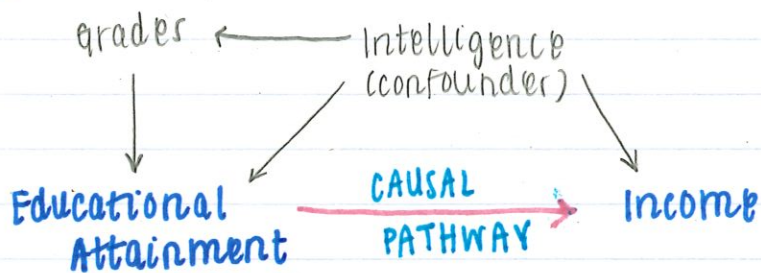 grades
Intelligence
(confounder)
Educational
Attainment
CAUSAL
PATHWAY
Income